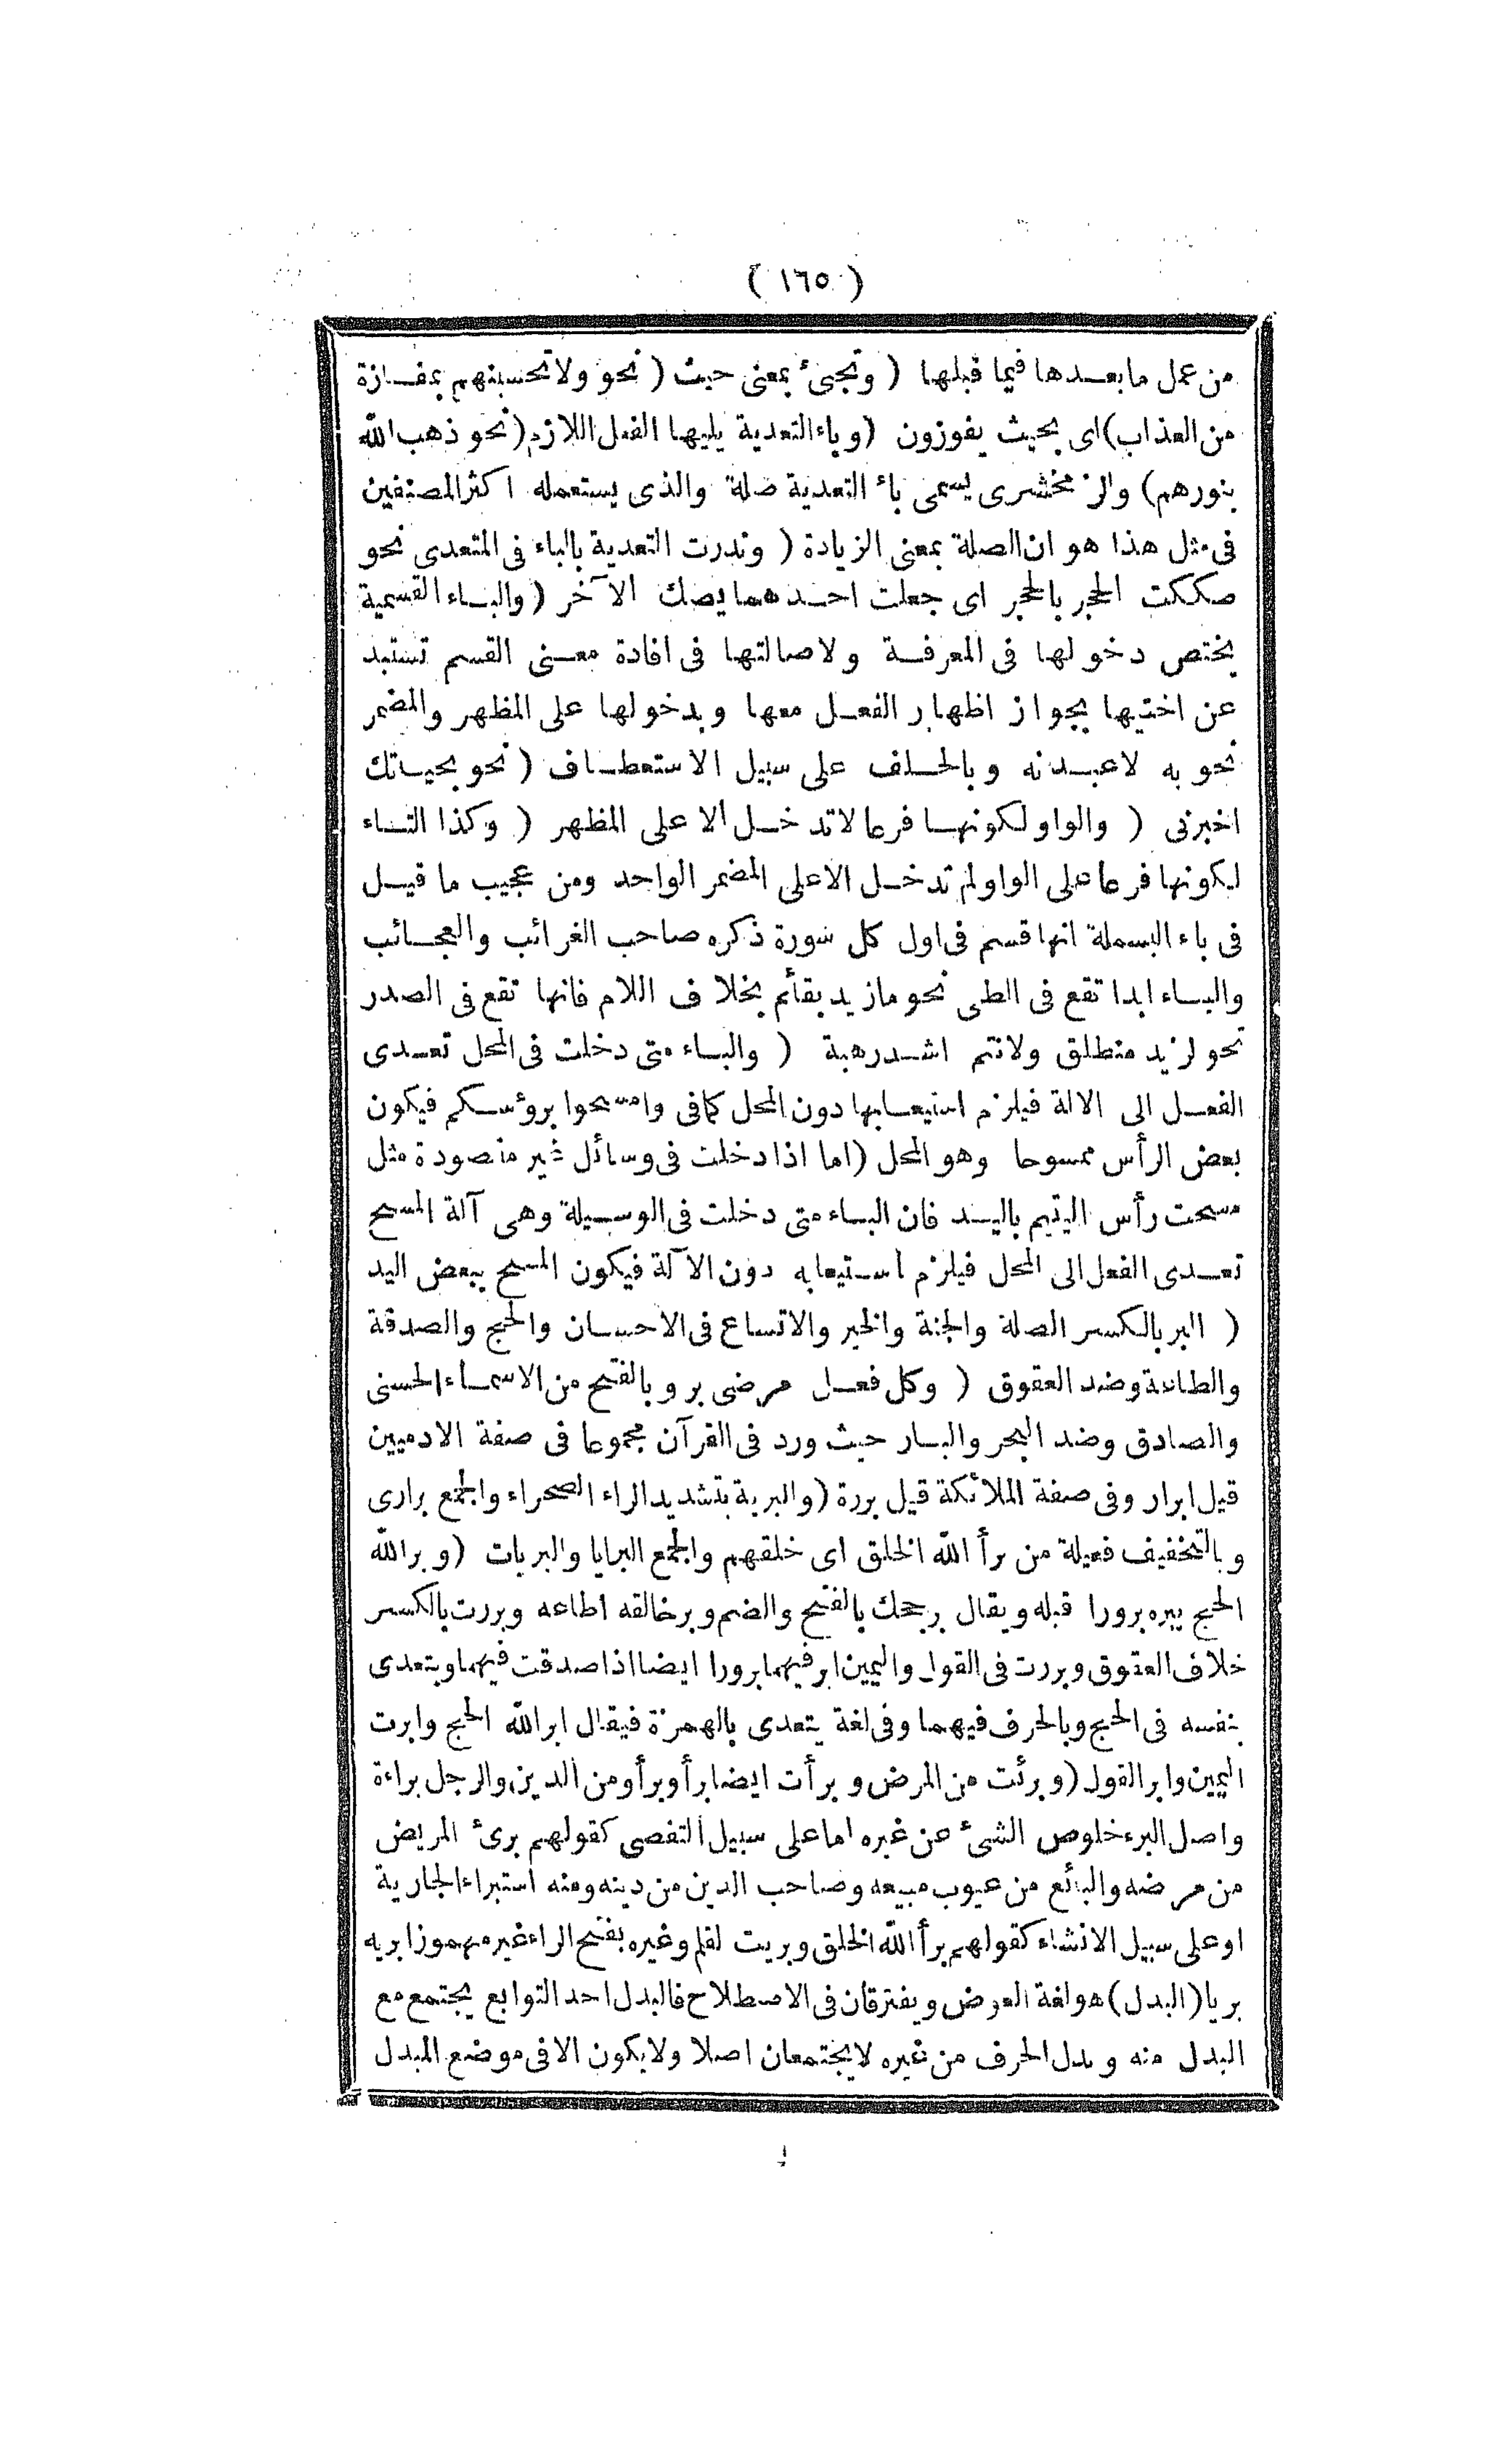 ( ١٦٥ )
من عمل ما بعدها فيما قبلها ( وتجئ بمعنى حيث ( نحو ولا تحسبنهم بمفازة
من العذاب) اى بحيث يفوزون (وباء التعدية يليها الفعل اللازم (نحو ذهب الله
بنورهم) والزمخشرى يسمى باء التعدية صلة والذى يستعمله اكثر المصنفين
فى مثل هذا هو ان الصلة بمعنى الزيادة ( وندرت التعدية بالباء فى المتعدى نحو
صككت الحجر بالحجر اى جعلت احدهما يصك الآخر ( والباء القسمية
يختص دخولها فى المعرفة ولاصالتها فى افادة معنى القسم تستبد
عن اختيها بجواز اظهار الفعل معها وبدخولها على المظهر والمضمر
نحو به لاعبدنه وبالحلف على سبيل الاستعطاف ( نحو بحياتك
اخبرنى ( والواو لكونها فرعا لا تدخل الا على المظهر ( وكذا التاء
ليكونها فرعا على الواو لم تدخل الا على المضمر الواحد ومن عجيب ما قيل
فى باء البسملة انها قسم فى اول كل سورة ذكره صاحب الغرائب والعجائب
والباء ابدا تقع فى الطى نحو ما زيد بقائم بخلاف اللام فانها تقع فى الصدر
نحو لزيد منطلق ولانتم اشد رهبة ( والباء متى دخلت فى المحل تعدى
الفعل الى الالة فيلزم استيعابها دون المحل كما فى وامسحوا برؤسكم فيكون
بعض الرأس ممسوحا وهو المحل (اما اذا دخلت فى وسائل غير مقصودة مثل
مسحت رأس اليتيم باليد فان الباء متى دخلت فى الوسيلة وهى آلة المسح
تعدى الفعل الى المحل فيلزم استيعابه دون الآلة فيكون المسح ببعض اليد
( البر بالكسر الصلة والجنة والخير والاتساع فى الاحسان والحج والصدقة
والطاعة وضد العقوق ( وكل فعل مرضى بر وبالفتح من الاسماء الحسنى
والصادق وضد البحر والبار حيث ورد فى القرآن مجموعا فى صفة الادميين
قيل ابرار وفى صفة الملائكة قيل بررة (والبرية بتشديد الراء الصحراء والجمع برارى
وبالتخفيف فعيلة من برأ الله الخلق اى خلقهم والجمع البرايا والبريات (وبر الله
الحج يبره برورا قبله ويقال بر حجك بالفتح والضم وبر خالقه اطاعه وبررت بالكسر
خلاف العقوق وبررت فى القول واليمين ابر فيهما برورا ايضا اذا صدقت فيهما ويتعدى
بنفسه فى الحج وبالحرف فيهما وفى لغة يتعدى بالهمزة فيقال ابر الله الحج وابرت
اليمين وابر القول (وبرئت من المرض وبرأت ايضا برأ وبرأ ومن الدين والرجل براءة
واصل البرء خلوص الشئ عن غيره اما على سبيل التفصى كقولهم برئ المريض
من مرضه والبائع من عيوب مبيعه وصاحب الدين من دينه ومنه استبراء الجارية
او على سبيل الانشاء كقولهم برأ الله الخلق وبريت القلم وغيره بفتح الراء غير مهموز ابريه
بريا (البدل) هو لغة العوض ويفترقان فى الاصطلاح فالبدل احد التوابع يجتمع مع
البدل منه وبدل الحرف من غيره لا يجتمعان اصلا ولا يكون الا فى موضع المبدل